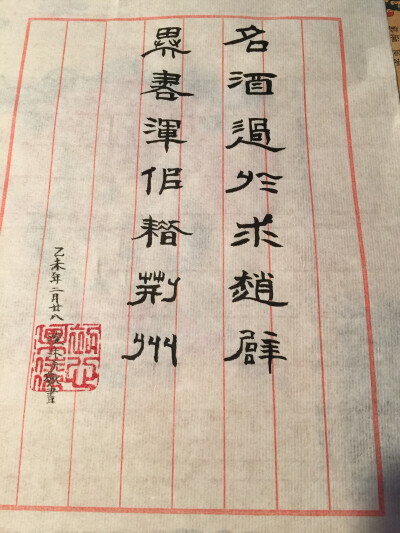 名酒過於求趙辟
異書渾佀耤荆州
乙未年二月廿八